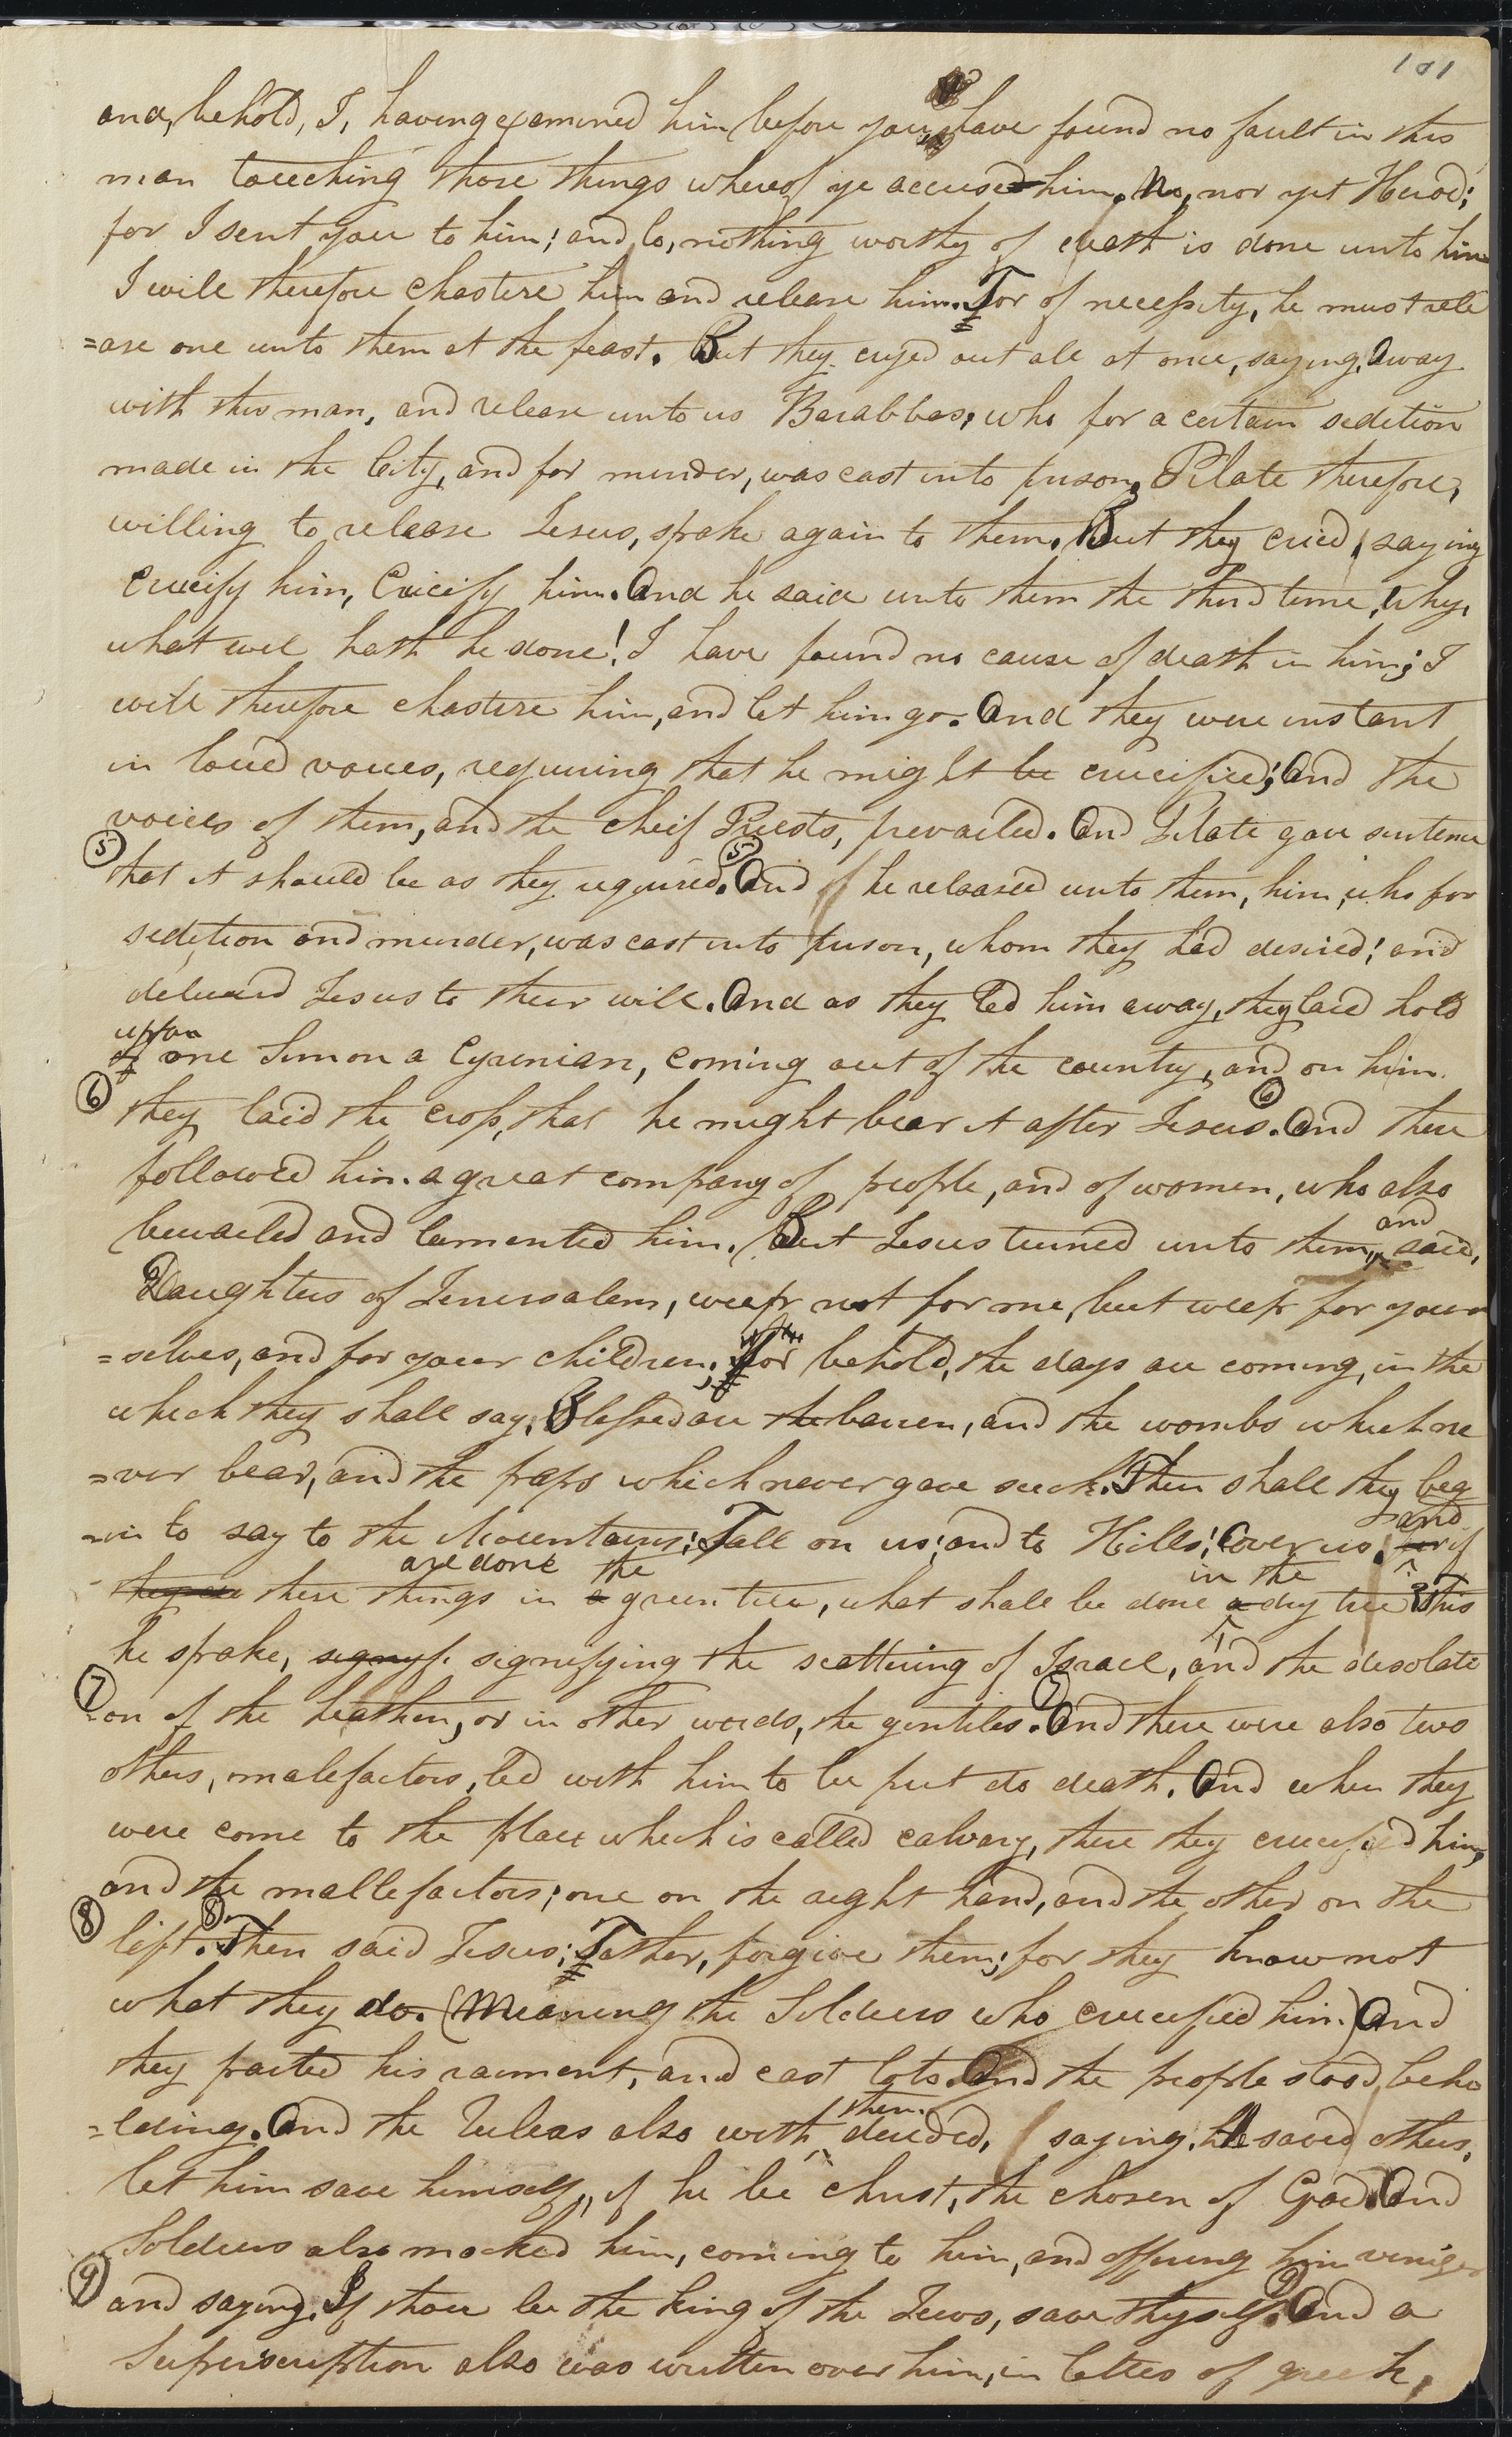 101
and, behold, I, having examined him before you, have found no fault in this
man touching those things whereof ye accused him. No, nor yet Herod;
for I sent you to him; and lo, nothing worthy of death is done unto him
I will therefore chastise him and release him. For of necessity, he must rele
=ase one unto them at the feast. But they cryed out all at once, saying, Away
with this man, and release unto us Barabbas, who for a certain sedition
made in the City, and for murder, was cast into prison, Pilate therefore,
willing to release Jesus, spake again to them. But they cried, saying
Crucify him, Crucify him. And he said unto them the third time, Why,
what evil hath he done! I have found no cause of death in him; I
will therefore chastise him, and let him go. And they were instant
in loud voices, requiring that he might be crucified; And the
voices of them, and the cheif Priests, prevailed. And Pilate gave sentence
5 that it should be as they required. 5 And he released unto them, him, who for
sedition and murder, was cast into prison, whom they had desired; and
delivered Jesus to their will. And as they led him away, they laid hold
upon
of one Simon a Cyrenian, coming out of the country, and on him
6 they laid the cross, that he might bear it after Jesus. 6 And there
followed him a great company of people, and of women, who also
bewailed and lamented him. But Jesus turned unto them, and said,
Daughters of Jerusalem, weep not for me, but weep for your
=selves, and for your children; for behold, the days are coming, in the
which they shall say, Blessed are the barren, and the wombs which ne
=ver bear, and the paps which never gave suck. Then shall they beg
=in to say to the Mountains; Fall on us; and to Hills; Cover us. and for if
are done the in the
they do these things in a green tree, what shall be done a dry tree? This
he spake, signyf signifying the scattering of Israel, and the desolati
7 =on of the heathen, or in other words, the gentiles. 7 And there were also two
others, malefactors, led with him to be put do death. And when they
were come to the place which is called calvary, there they crucified him,
and the mallefactors; one on the right hand, and the other on the
8 left. 8 Then said Jesus; Father, forgive them; for they know not
what they do. (Meaning the Soldiers who crucified him.) And
they parted his raiment, and cast lots. And the people stood, beho
=lding. And the Rulers also with them derided, saying. He saved others,
let him save himself, if he be Christ, the chosen of God. And
Soldiers also mocked him, coming to him, and offering him viniger
9 and saying, If thou be the King of the Jews, save thyself. 9 And a
Superscription also was written over him, in letters of greek,